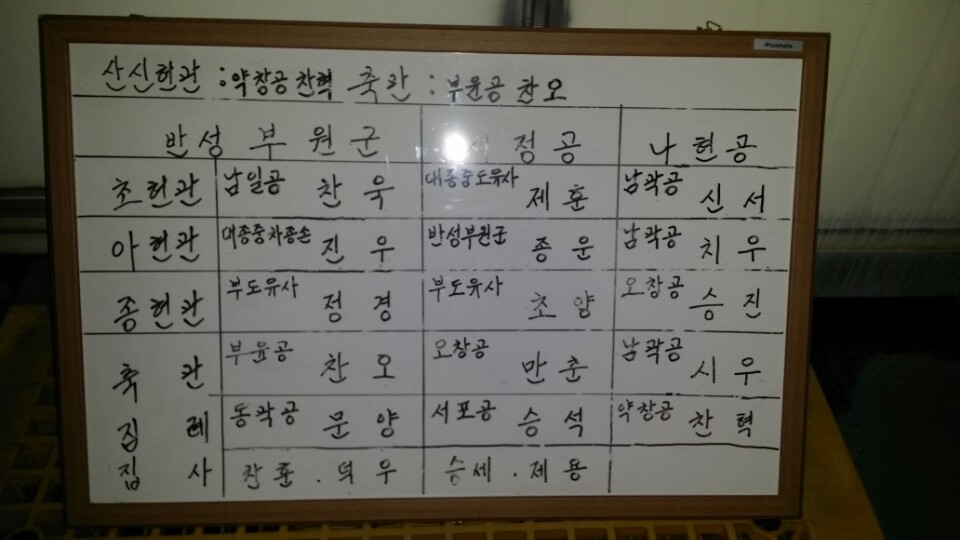 산신헌관 : 약창공 찬혁 축관 : 부윤공 찬오
반성 부원군 정공 나현공
초헌관 남일공 찬욱 대종중도유사 제훈 남곽공 신서
아헌관 대종중차종손 진우 반성부원군 종운 남곽공 치우
종헌관 부도유사 정경 부도유사 초양 오창공 승진
축관 부윤공 찬오 오창공 만춘 남곽공 시우
집례 동곽공 문양 서포공 승석 약창공 찬혁
집사 찬훈 . 덕우 승세 . 제용